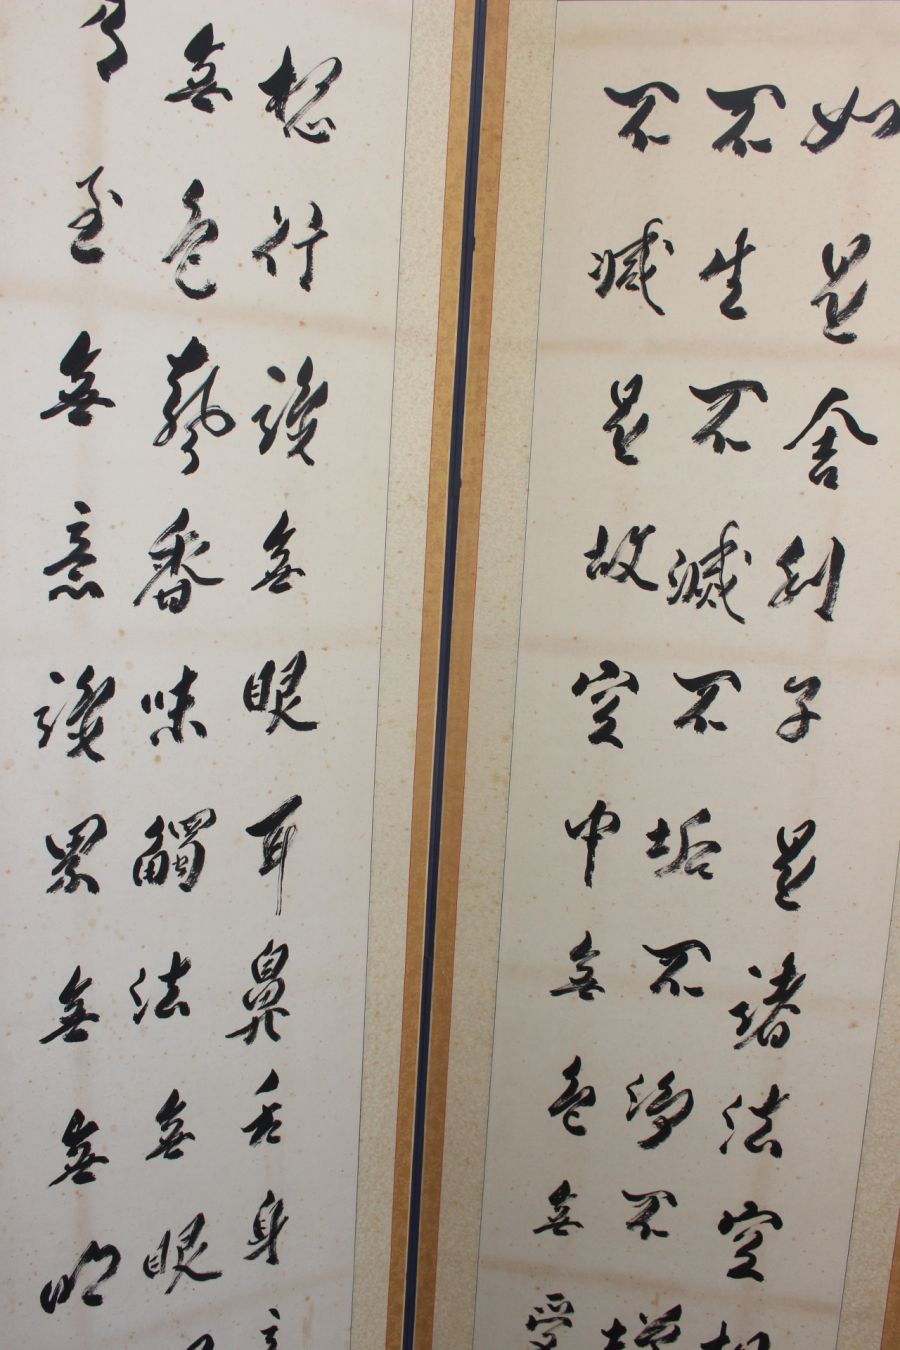 如是舍利子是諸法空相
不生不滅不垢不淨不增
不減是故空中無色無受
想行識無眼耳鼻舌身意
無色聲香味觸法無眼
乃至無意識界無無明